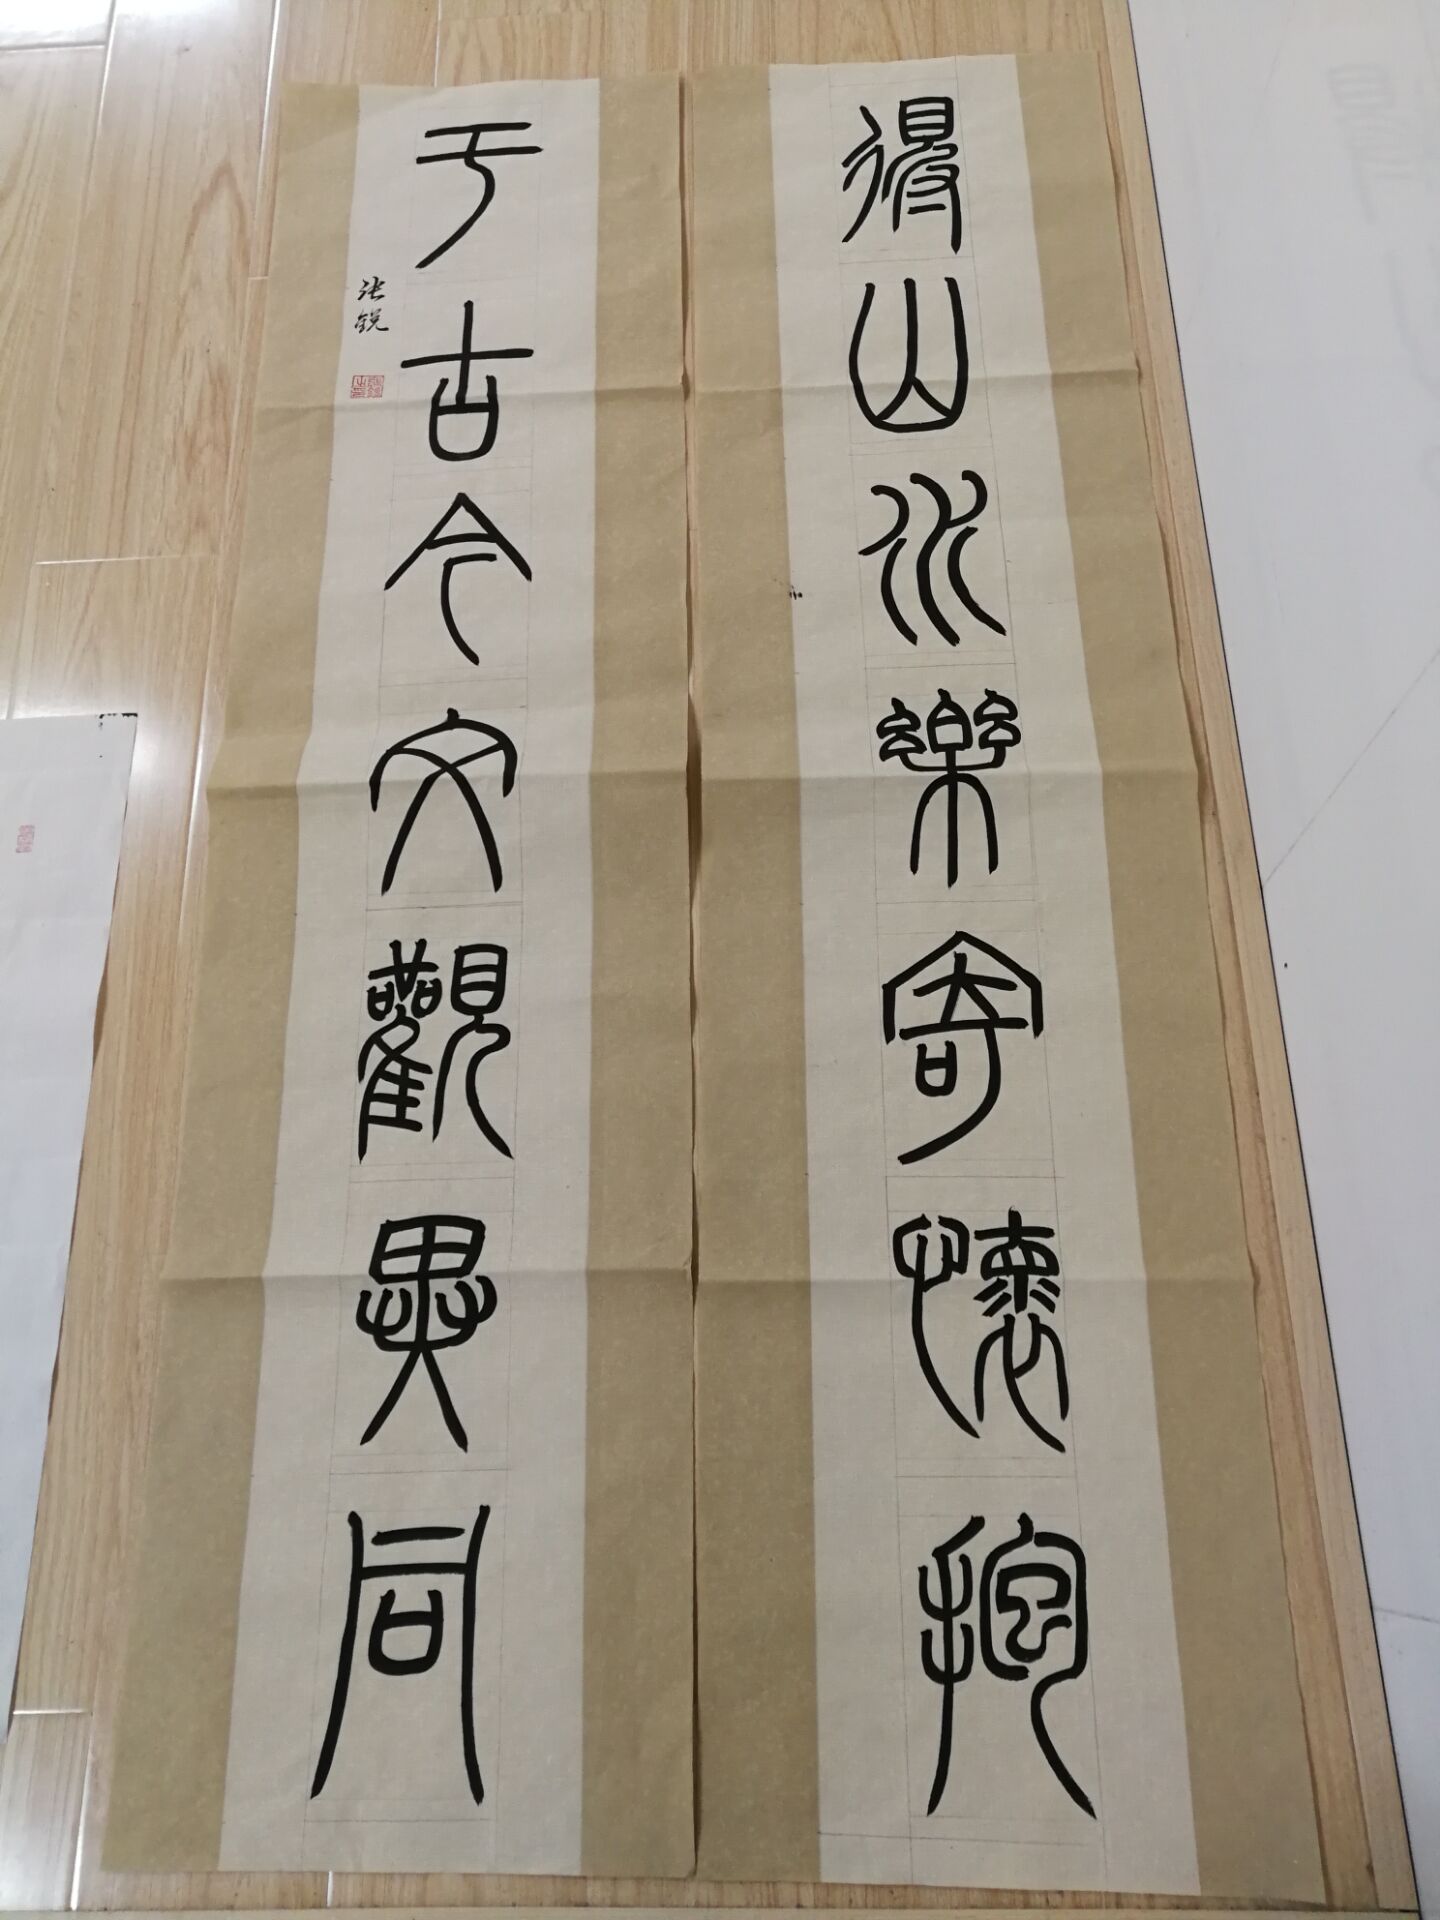 得山水樂寄懷抱
于古今文觀異同
张锐